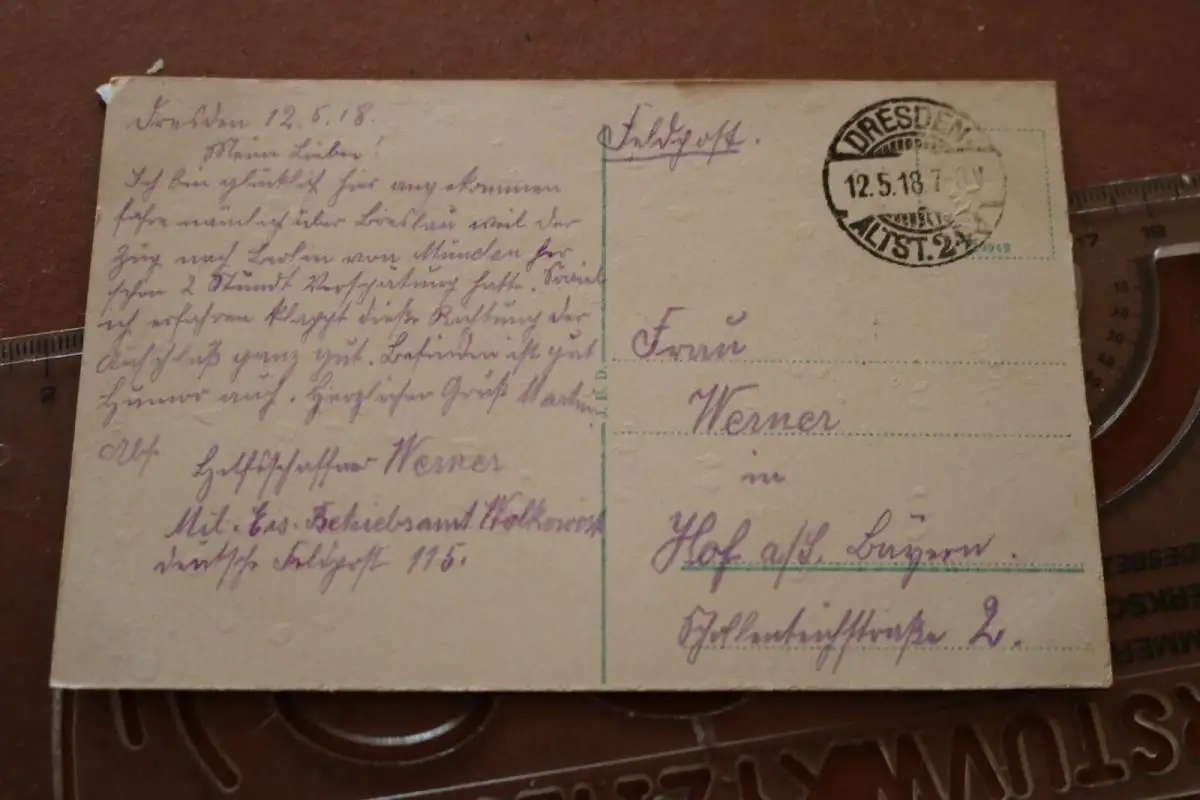 Dresden 12.5.18.
Meine Lieben!
Ich bin glücklich hier angekommen
fahre nämlich über Breslau weil der
Zug nach Berlin von München her
schon 2 Stund Verspätung hatte. Soviel
ich erfahren klappt diese Richtung der
Anschluß ganz gut. Befinden ist gut
Humor auch. Herzlichen Gruß Martin
Abs.
Hilfsschaffner Werner
Mil. Eis. Betriebsamt Wolkowisk
deutsche Feldpost 115.
Feldpost.
DRESDEN
12.5.18 7-8 V
ALTST. 24
J. K. D.
Frau
Werner
in
Hof a/S. Bayern.
Schollenteichstraße 2.